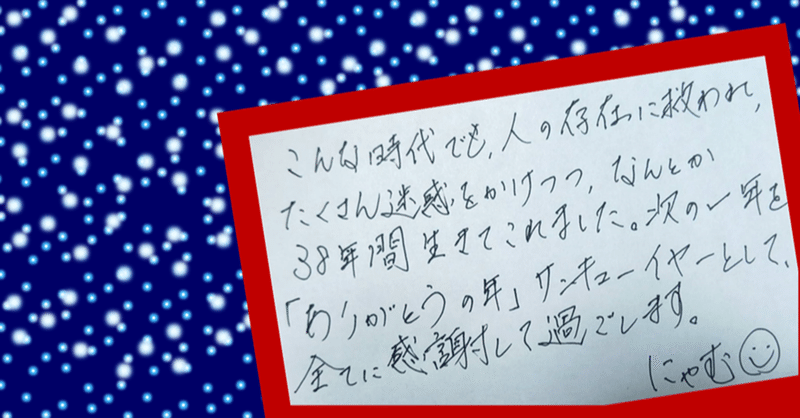 こんな時代でも、人の存在に救われ、
たくさん迷惑をかけつつ、なんとか
38年間生きてこれました。次の一年を
「ありがとうの年」サンキューイヤーとして、
全てに感謝して過ごします。
にゃむ